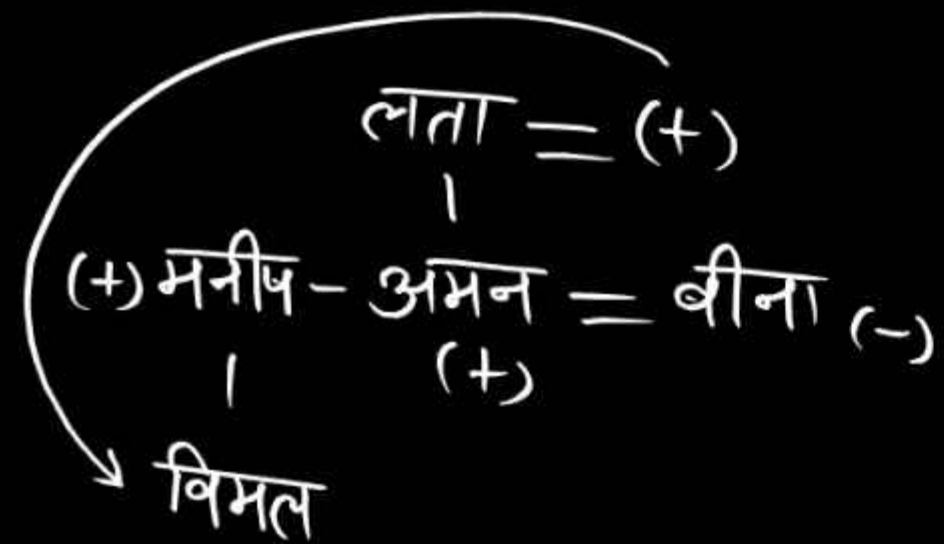 लता = (+)
(+) मनीष - अमन = बीना (-)
(+)
विमल